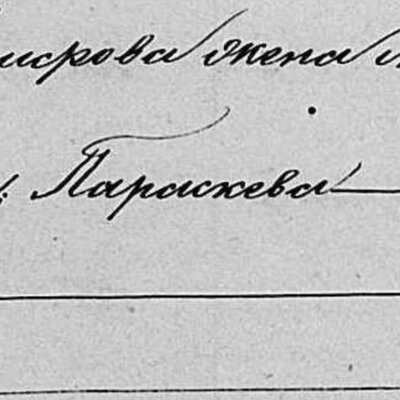 мирова жена
Параскева